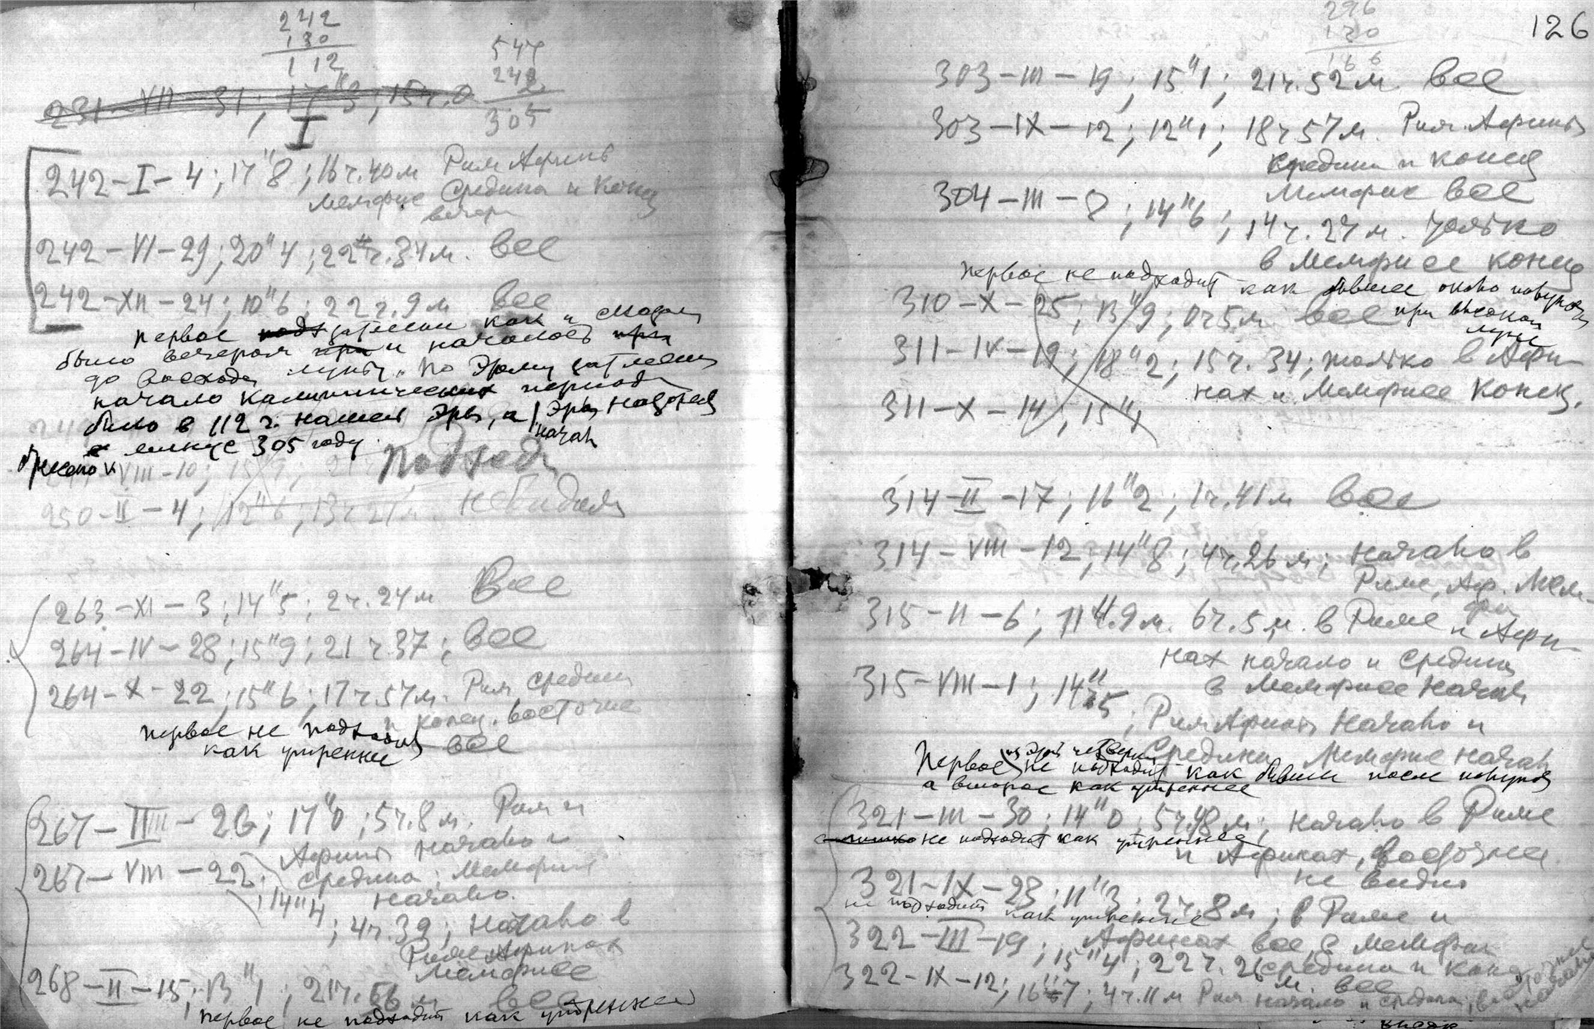 242
130
112
547
242
305
231-VII-31; 17"3; 15ч.0
I
242-I-4; 17"8; 16ч.40м Рим Афины
Мемфис Средина и Конец
вечер
242-VI-29; 20"4; 22ч.34м. все
242-XII-24; 10"6; 22ч.9м все
первое затмение как и
было вечером и началось
до восхода луны. По этому затмению
начало каллиппических периода
было в 112 г. нашей эры, а эры
начал
минус 305 году
VIII-10; 15"
Подход
250-II-4; 12"6; 13ч.21м. не видим
263-XI-3; 14"5; 2ч.24м Все
264-IV-28; 15"9; 21ч.37; все
264-X-22; 15"6; 17ч.57м. Рим средина
и конец. восточнее
все
первое не подходит
как утреннее
267-III-26; 17"0; 5ч.8м. Рим и
Афины начало и
267-VIII-22; средина; Мемфис
начало.
14"4; 4ч.39; начало в
Риме Афинах
Мемфисе
268-II-15; 13"1; 21ч.56м все
первое не подходит как утреннее
126
296
130
166
303-III-19; 15"1; 21ч.52м все
303-IX-12; 12"1; 18ч57м. Рим Афины
средина и конец
Мемфис все
304-III-8; 14"6; 14ч.27м. только
в Мемфисе конец
первое не подходит как бывшее около полуночи
310-X-25; 13"9; 0ч5м все при высокой
луне
311-IV-19; 18"2; 15ч.34; только в Афи-
нах и Мемфисе Конец.
311-X-14; 15"
314-II-17; 16"2; 1ч.41м все
314-VIII-12; 14"8; 4ч.26м; начало в
Риме, Аф. Мем-
фи
315-II-6; 11".9м. 6ч.5м. в Риме и Афи-
нах начало и средина
в Мемфисе начал
315-VIII-1; 14"5
; Рим Афины Начало и
Средина Мемфис начал
Первое из этой четверти не подходит как бывшее после полуночи
а второе как утреннее
321-III-30; 14"0; 5ч.48м; начало в Риме
не подходит как утреннее
и Афинах, восточнее
не видно
321-IX-23; 11"3; 2ч.8м; в Риме и
не подходит как утреннее
Афинах все в Мемфи
322-III-19; 15"4; 22ч.26м. средина и конец
все
322-IX-12; 16"7; 4ч.11м Рим начало и средина; восточнее
начало